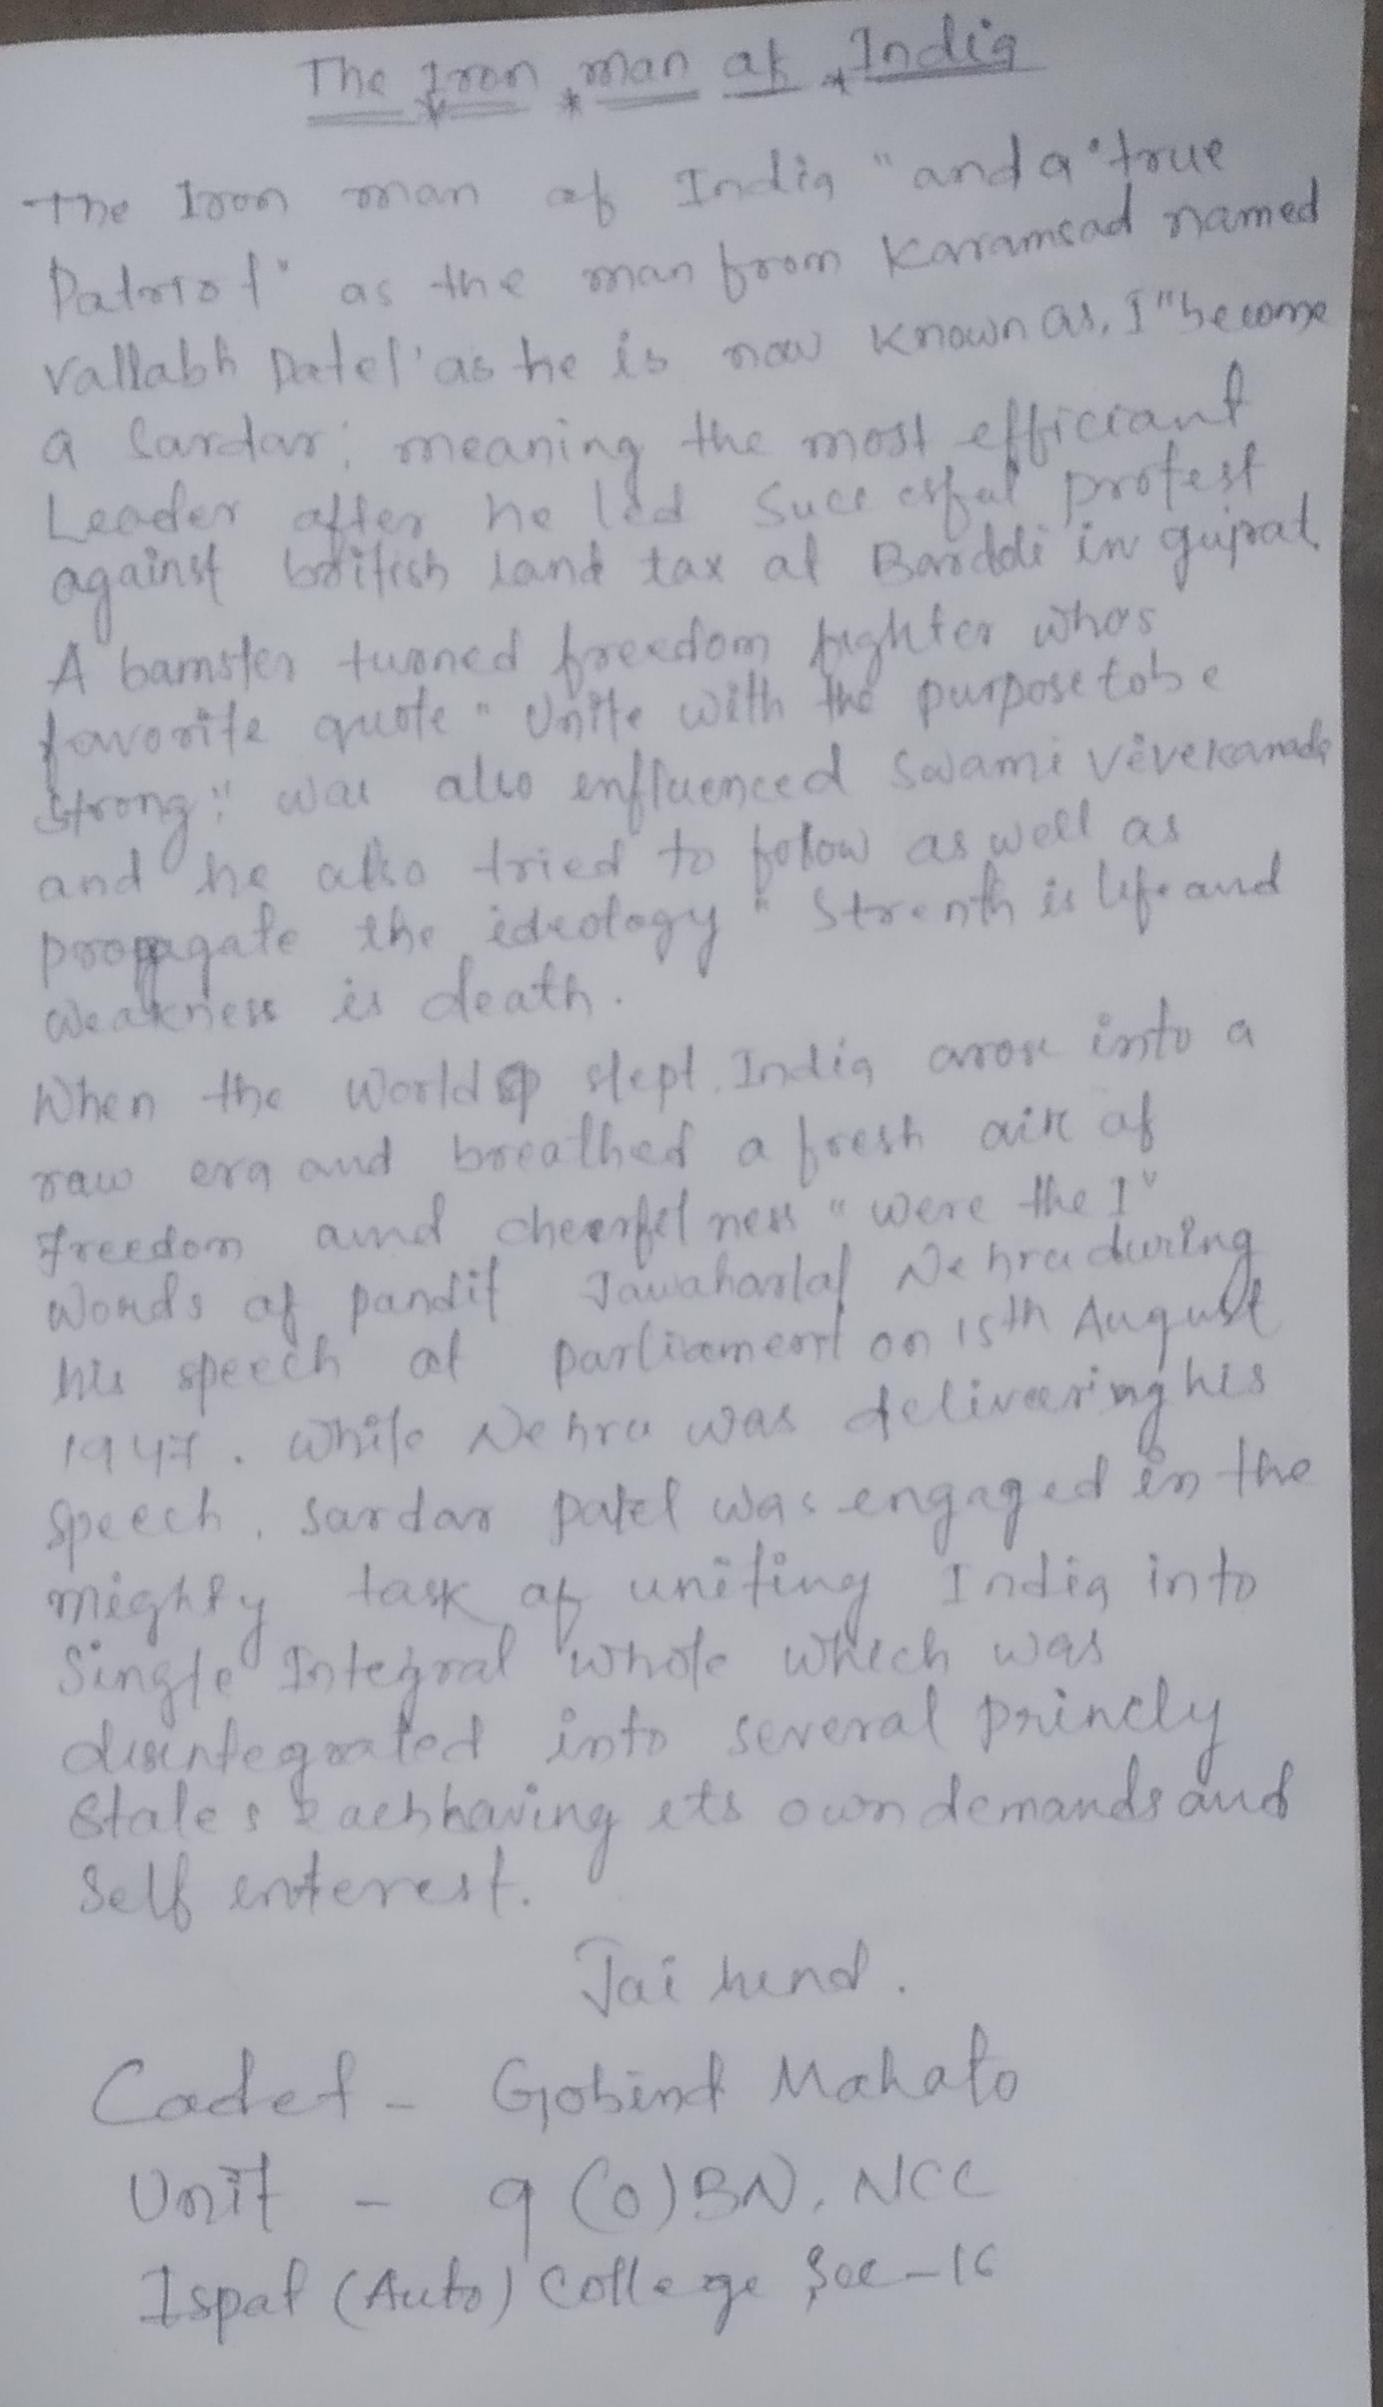 The Iron man of India
The Iron man of India " and a "true
Patriot" as the man from Karamsad named
Vallabh Patel' as he is now known as, I "become
a Sardar; meaning the most efficiant
Leader after he led Succesful protest
against british land tax at Bardoli in gujrat.
A bamster turned freedom fighter who's
favorite quote " Unite with the purpose to be
strong" was also enfluenced Swami vivekanada
and he also tried to folow as well as
propagate the ideology " Strenth is life and
weakness is death.
When the world slept. India arose into a
raw era and breathed a fresh air of
freedom and cheerfelness " were the I"
words of pandit Jawaharlal Nehru during
his speech at parliament on 15th August
1947. While Nehru was delivering his
speech, sardar patel was engaged in the
mighty task of uniting India into
Single Integral whole which was
disintegrated into several princly
States Each having its own demands and
Self enterest.
Jai hind.
Cadet - Gobind Mahato
Unit - 9 (O) BN, NCC
Ispat (Auto) College Sec-16